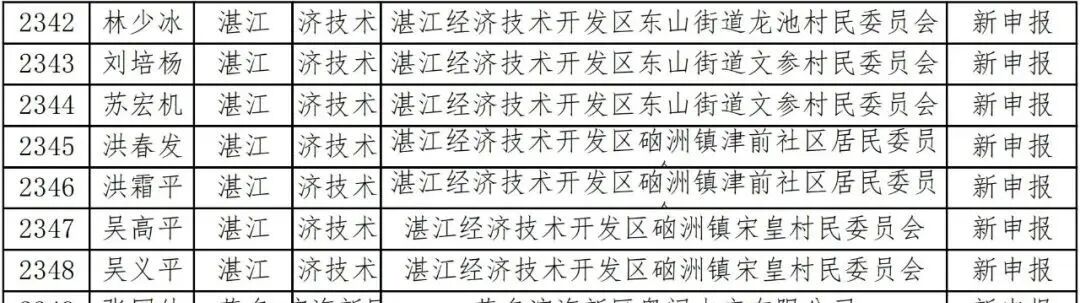 2342 林少冰 湛江 济技术 湛江经济技术开发区东山街道龙池村民委员会 新申报
2343 刘培杨 湛江 济技术 湛江经济技术开发区东山街道文参村民委员会 新申报
2344 苏宏机 湛江 济技术 湛江经济技术开发区东山街道文参村民委员会 新申报
2345 洪春发 湛江 济技术 湛江经济技术开发区硇洲镇津前社区居民委员 新申报
2346 洪霜平 湛江 济技术 湛江经济技术开发区硇洲镇津前社区居民委员 新申报
2347 吴高平 湛江 济技术 湛江经济技术开发区硇洲镇宋皇村民委员会 新申报
2348 吴义平 湛江 济技术 湛江经济技术开发区硇洲镇宋皇村民委员会 新申报